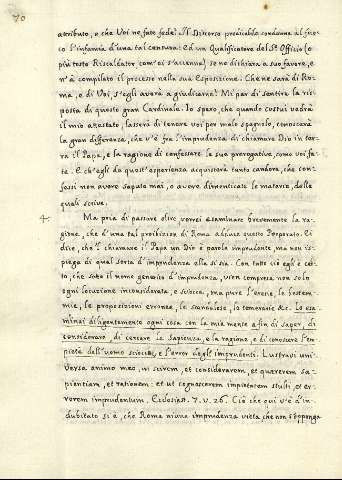 70
attributo, e che Voi ne fate fede. Il Discorso predicabile condanna al fuo-
co l'infamia d'una tal censura: Ed un Qualificatore del S.º Offizio (o
più tosto Riscaldator com'ei s'accenna) se ne dichiara a suo favore, e
n'à compilato il processo nella sua Esposizione. Che ne sarà di Ro-
ma, e di Voi, s'egli avorà a giudicarne? Mi par di sentire la ris-
posta di questo gran Cardinale. Io spero, che quando costui vedrà
il mio attestato, lascerà di tenere voi per malo spagnolo, conoscerà
la gran differenza, che v'è fra l'imprudenza di chiamare Dio in ter-
ra il Papa, e la ragione di confessare le sue prerogative, come voi fa-
te. E ch'egli da quest'esperienza acquisterà tanto candore, che con-
fessi non avere saputo mai, o avere dimenticate le materie, delle
quali scrive.
4. Ma pria di passare oltre vorrei esaminare brevemente la ra-
gione, che d'una tal proibizion di Roma adduce questo Porporato. Ei
dice, che il chiamare il Papa un Dio è parola imprudente, ma non is-
piega di qual sorta d'imprudenza ella si sia. Con tutto ciò egli è cer-
to, che sotto il nome generico d'imprudenza, vien compresa non solo
ogni locuzione inconsiderata, e sciocca, ma pure l'eresie, le bestem-
mie, le proposizioni erronee, le scandalose, le temerarie &c. Io esa-
minai diligentemente ogni cosa con la mia mente a fin di saper, di
considerare, di cercare la Sapienza, e la ragione, e di conoscere l'em-
pietà dell'uomo sciocco, e l'error degli imprudenti. Lustravi uni-
versa animo meo, ut scirem, et considerarem, et quærerem sa-
pientiam, et rationem: et ut cognoscerem impietatem stulti, et er-
rorem imprudentum. Ecclesiast. 7. v. 26. Ciò che qui v'è d'in-
dubitato si è, che Roma niuna imprudenza vieta che non s'opponga